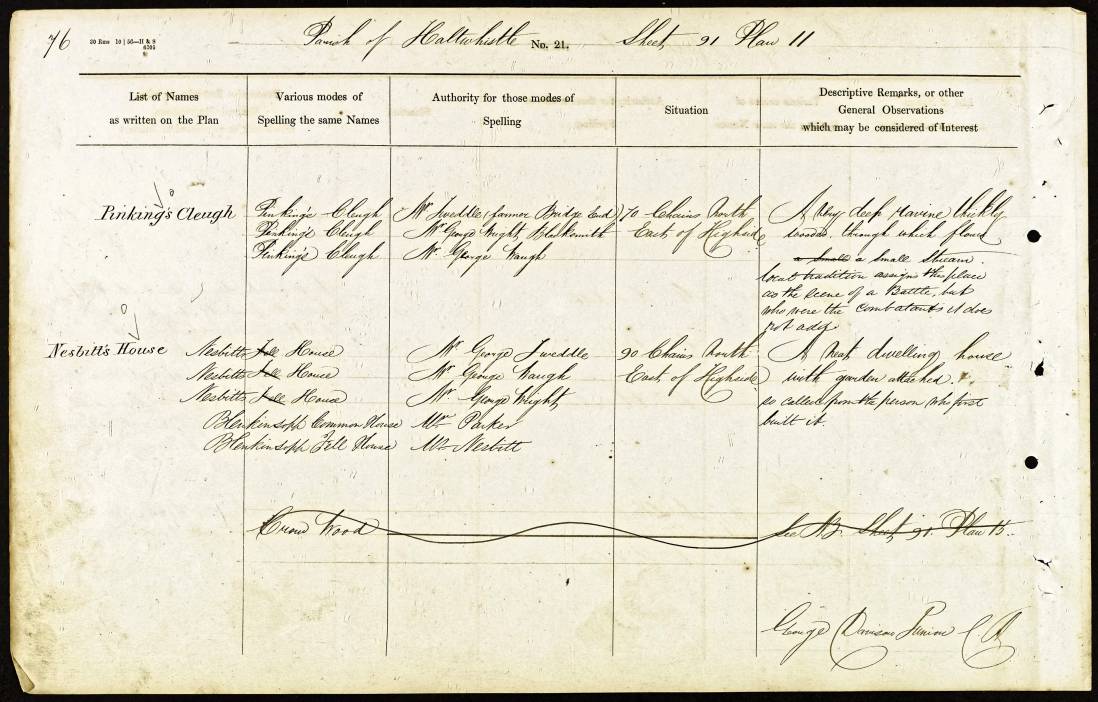 76
20 Rms 10 | 56—H & S
6305
Parish of Haltwhistle No. 21. Sheet 91 Plan 11
List of Names
as written on the Plan
Various modes of
Spelling the same Names
Authority for those modes of
Spelling
Situation
Descriptive Remarks, or other
General Observations
which may be considered of Interest
Pinking's Cleugh
Pinking's Cleugh
Pinking's Cleugh
Pinking's Cleugh
Mr Tweddle (farmer Bridge End)
Mr George Wright, Blacksmith
Mr George Waugh
70 Chains North
East of Highside
A Very deep ravine thickly
wooded through which flows
a Small a Small Stream.
local tradition assign this place
as the scene of a Battle, but
who were the combatants it does
not add
Nesbitt's House
Nesbitts Fell House
Nesbitts Fell House
Nesbitts Fell House
Blenkinsopp Common House
Blenkinsopp Fell House
Mr George Tweddle
Mr George Waugh
Mr George Wright
Mr Parker
Mr Nesbitt
90 Chains North
East of Highside
A neat dwelling house
with garden attached.
so called from the person who first
built it.
Crow Wood
See Sheet 91 Plan 15.
George Junior C. A